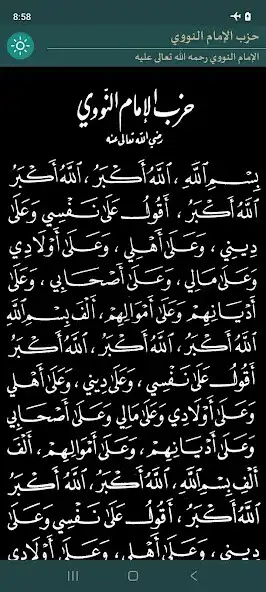 8:58
حزب الإمام النووي
الإمام النووي رحمه الله تعالى عليه
حزب الإمام النووي
رضي الله تعالى عنه
بِسْمِ اللَّهِ ، اللَّهُ أَكْبَرُ ، اللَّهُ أَكْبَرُ
اللَّهُ أَكْبَرُ ، أَقُولُ عَلَىٰ نَفْسِي وَعَلَىٰ
دِينِي ، وَعَلَىٰ أَهْلِي ، وَعَلَىٰ أَوْلَادِي
وَعَلَىٰ مَالِي ، وَعَلَىٰ أَصْحَابِي ، وَعَلَىٰ
أَدْيَانِهِمْ وَعَلَىٰ أَمْوَالِهِمْ ، أَلْفَ بِسْمِ اللَّهِ
اللَّهُ أَكْبَرُ ، اللَّهُ أَكْبَرُ ، اللَّهُ أَكْبَرُ
أَقُولُ عَلَىٰ نَفْسِي ، وَعَلَىٰ دِينِي ، وَعَلَىٰ أَهْلِي
وَعَلَىٰ أَوْلَادِي وَعَلَىٰ مَالِي وَعَلَىٰ أَصْحَابِي
وَعَلَىٰ أَدْيَانِهِمْ ، وَعَلَىٰ أَمْوَالِهِمْ ، أَلْفَ
أَلْفِ بِسْمِ اللَّهِ ، اللَّهُ أَكْبَرُ ، اللَّهُ أَكْبَرُ
اللَّهُ أَكْبَرُ ، أَقُولُ عَلَىٰ نَفْسِي وَعَلَىٰ
دِينِي ، وَعَلَىٰ أَهْلِي ، وَعَلَىٰ أَوْلَادِي